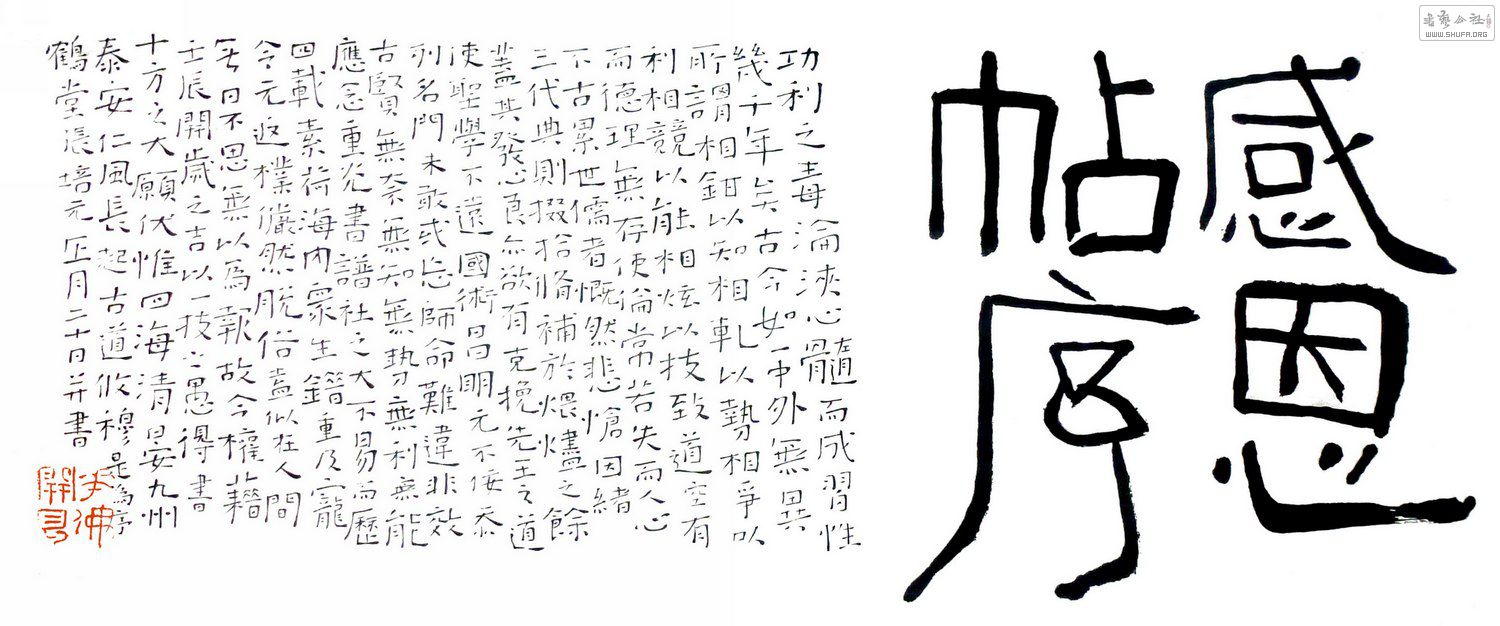 感恩
帖序
功利之毒淪浹心髓而成習性
幾千年矣古今如一中外無異
所謂相鉗以知相軋以勢相爭以
利相競以能相炫以技致道空有
而德理無存使倫常若失而人心
不古累世儒者慨然悲愴因緒
三代典則掇拾脩補於煨燼之餘
蓋其發心良亦欲有克挽先王之道
使聖學不遠國術昌明元不佞忝
列名門未敢或忘師命難違非效
古賢無奈無知無勢無利無能
應念重光書譜社之大不易為歷
四載素荷海內眾生錯重及寵
令元返樸儼然脫俗盍似在人間
無日不思無以為報故令權藉
壬辰開歲之吉以一技之愚得書
十方之大願伏惟四海清晏九州
泰安仁風長起古道攸穆是為序
鶴堂張培元正月二十日并書
書藝公社
WWW.SHUFA.ORG